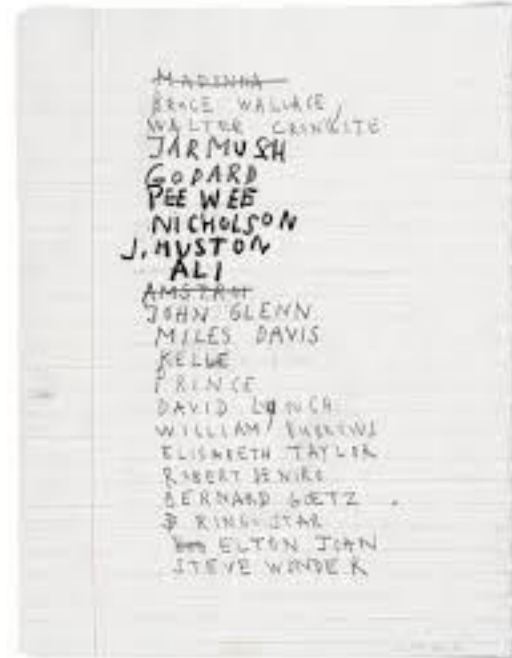 MADONNA
BRUCE WALLACE,
WALTER CRONKITE
JARMUSH
GODARD
PEE WEE
NICHOLSON
J. HUSTON
ALI
AMSTRON
JOHN GLENN
MILES DAVIS
KELLE
PRINCE
DAVID LYNCH
WILLIAM
ELISABETH TAYLOR
ROBERT DENIRO
BERNARD GOETZ .
RINGO STAR
ELTON JOHN
STEVE WONDER